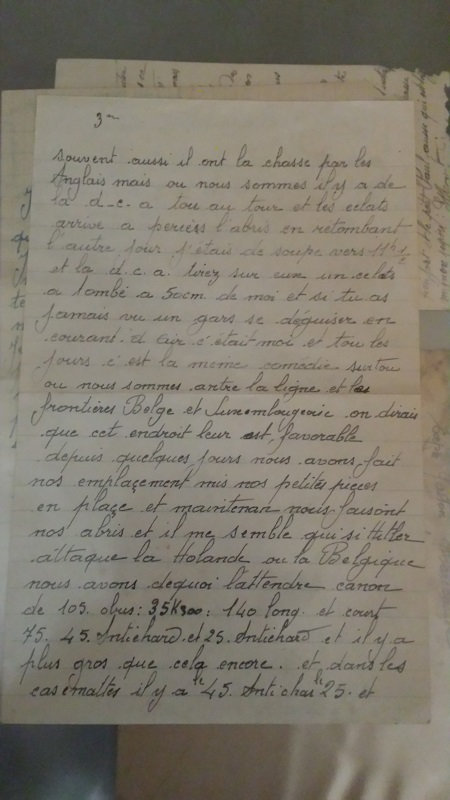 3
souvent aussi il ont la chasse par les
Anglais mais ou nous sommes il y a de
la d-c-a tou au tour et les eclats
arrive a percess l'abris en retombant
l'autre jour j'étais de soupe vers 11h½
et la d.c.a. tirez sur eux un eclats
a tombé a 50cm de moi et si tu as
jamais vu un gars se déguiser en
courant d'air c'était moi et tou les
jours c'est la meme comédie surtou
ou nous sommes antre la ligne et les
frontières Belge et Luxembougeoie on dirais
que cet endroit leur est favorable
depuis quelques jours nous avons fait
nos emplaçement mis nos petites pieces
en plaçe et maintenan nous faisont
nos abris et il me semble qui si Hitler
attaque la Holande ou la Belgique
nous avons dequoi l'attendre canon
de 105. obus: 35K300: 140 long. et court
75. 45. Antichard et 25. Antichard et il y a
plus gros que cela encore. et dans les
casemattes il y a le 45. Antichar le 25. et